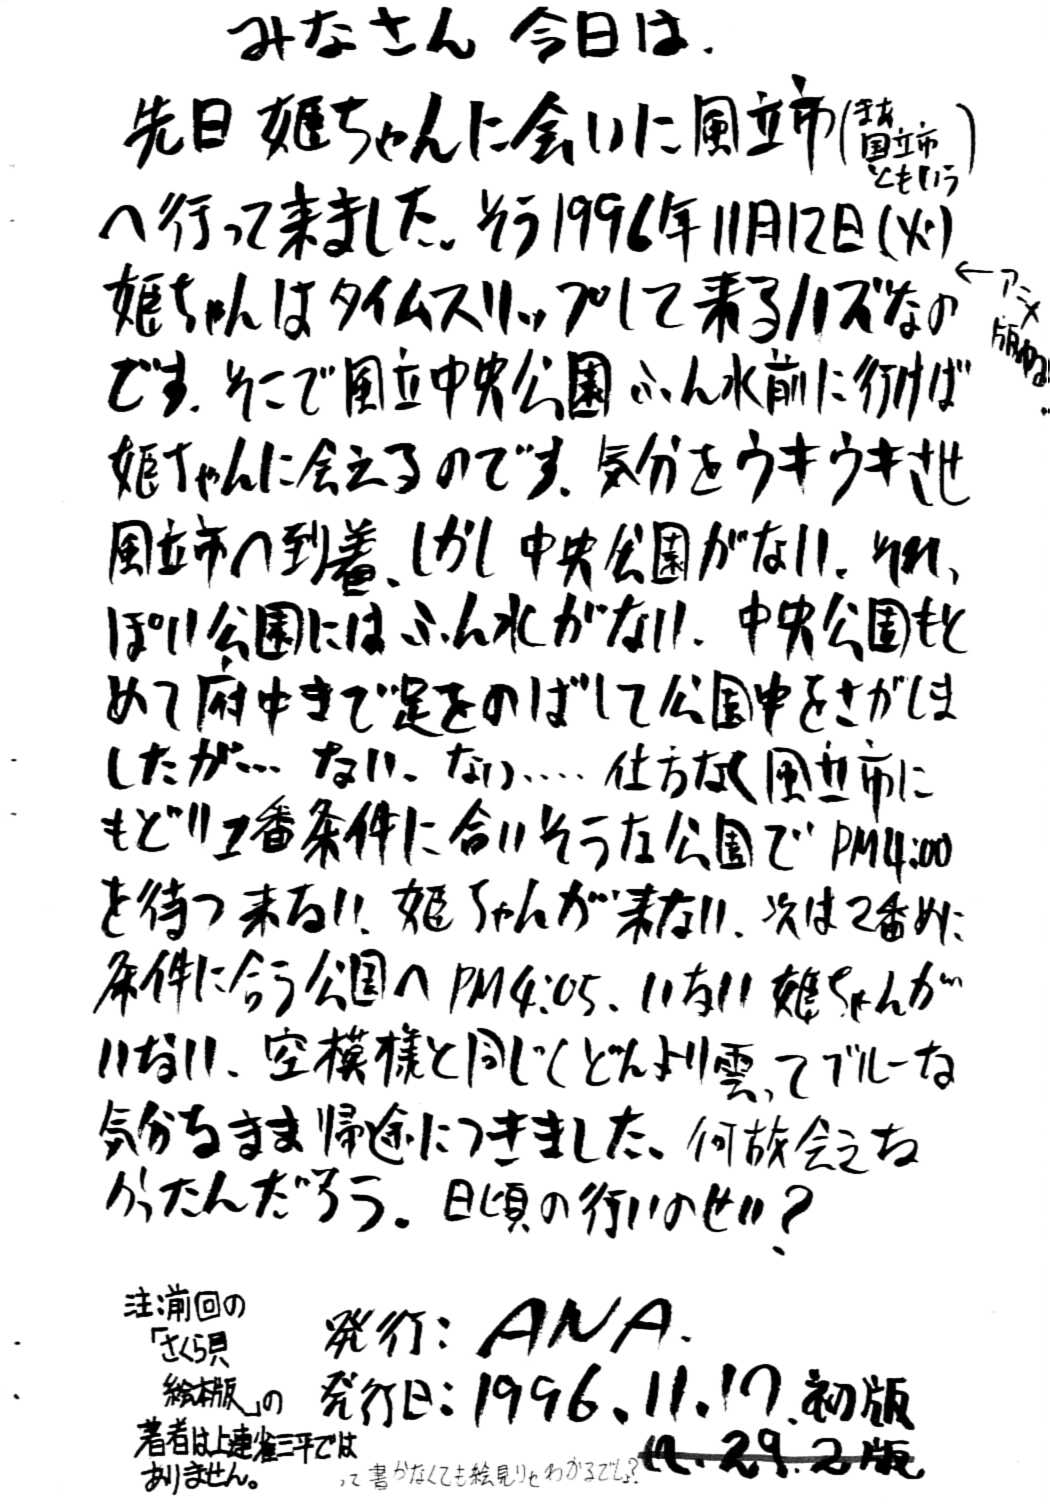 みなさん 今日は.
先日 姫ちゃんに会いに風立市(まあ国立市ともいう)
へ行って来ました。そう1996年11月12日(火)
←アニメ版ねる!!
姫ちゃんはタイムスリップして来るハズなの
です. そこで風立中央公園 ふん水前に行けば
姫ちゃんに会えるのです. 気分をウキウキさせ
風立市へ到着、しかし 中央公園がない. それっ
ぽい公園にはふん水がない. 中央公園もと
めて府中まで足をのばして公園中をさがしま
したが… ない、ない…‥ 仕方なく風立市に
もどり1番条件に合いそうな公園で PM4:00
を待つ 来ない. 姫ちゃんが来ない. 次は2番めに
条件に合う公園へ PM4:05、いない 姫ちゃんが
いない、空模様と同じくどんより雲ってブルーな
気分なまま帰途につきました、何故会えな
かったんだろう. 日頃の行いのせい?
注:前回の
「さくら貝
絵本版」の
著者は上連雀三平では
ありません。
発行: ANA.
発行日:1996.11.17.初版
12.29.2版
って書かなくても絵見りゃわかるでしょ?